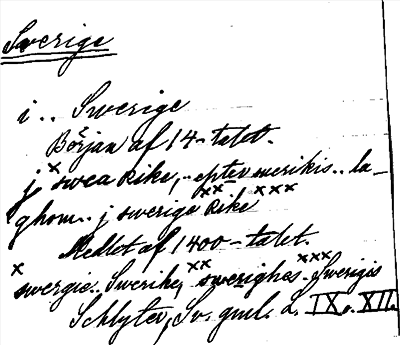 Sverige
i .. Swerige
Början af 14-talet.
j swea Rike, .. epter werikis .. la-
ghom .. j swerige Rike
Medlet af 1400-talet.
swergie .. Swerike, swerighes .. Swerigis
Schlyter, Sv. gml. L. IX o. XII.